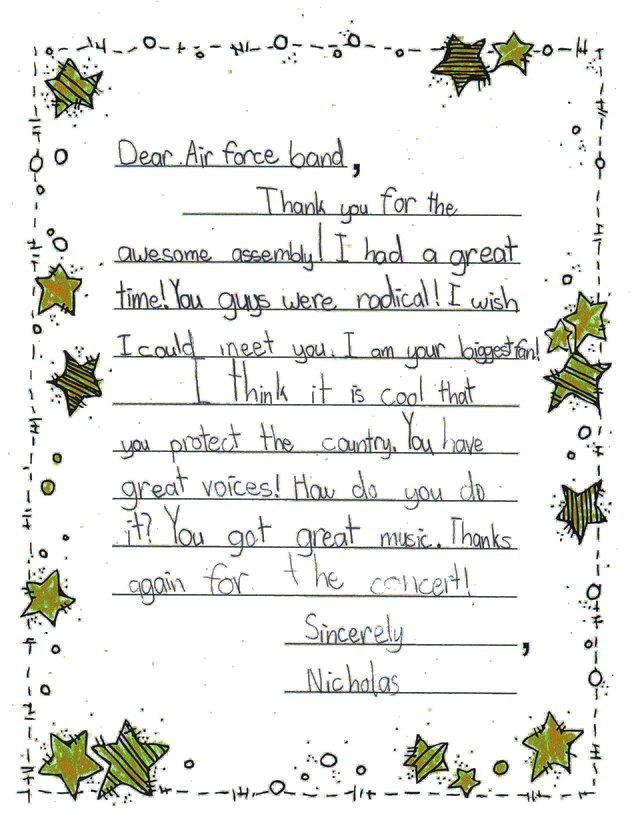 Dear Air force band,
Thank you for the
awesome assembly! I had a great
time! You guys were radical! I wish
I could meet you. I am your biggest fan!
I think it is cool that
you protect the country. You have
great voices! How do you do
it? You got great music. Thanks
again for the concert!
Sincerely,
Nicholas